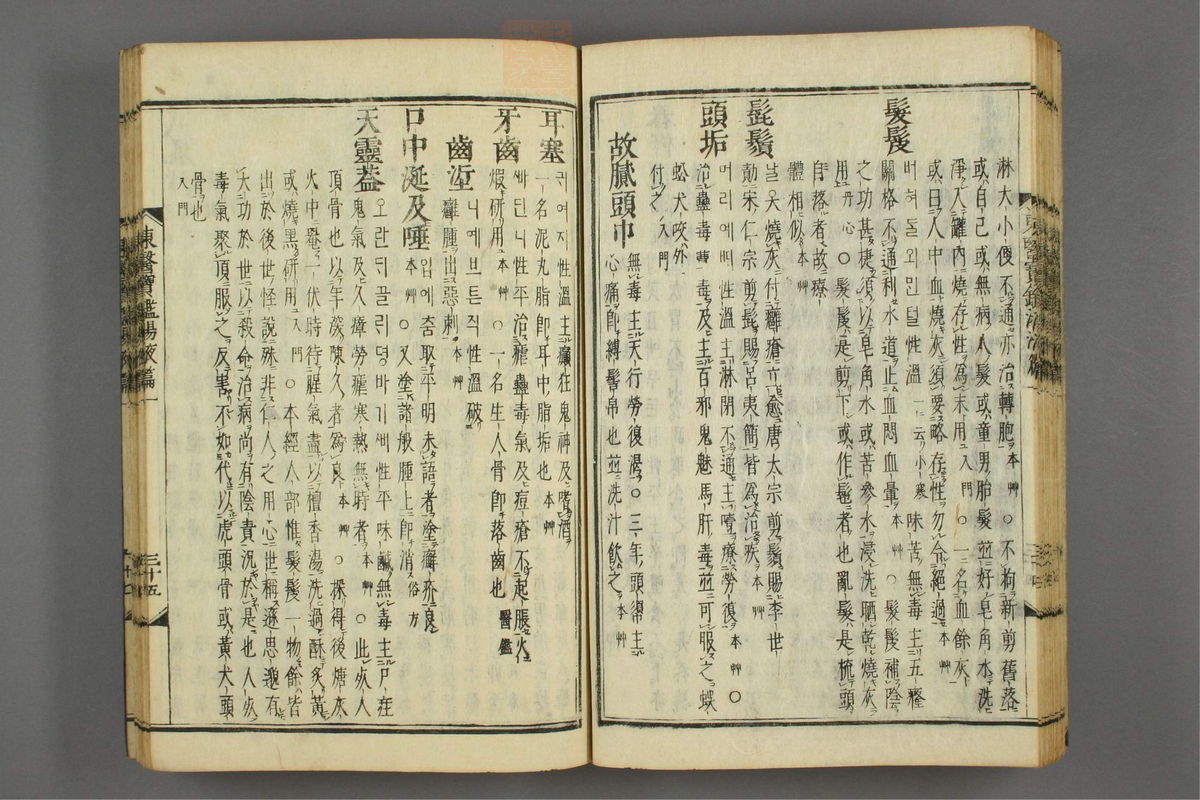 淋大小便不通亦治轉胞本艸○不拘新剪舊落
或自己或無病人髮或童男胎髮並好皂角水洗
淨入罐內燒存性爲末用入門○一名血餘灰
或曰人中血燒灰須要略存性勿令絕過本艸
髮髲
머혀돌외민덜性溫一云小寒味苦無毒主五癃
關格不通利水道止血悶血暈本艸髮髲補陰
之功甚捷須以皂角水或苦參水浸洗晒乾燒灰
用丹心○髮髲是剪下或作髢者也亂髮是梳頭
自落者故療體相似本艸
髭鬚
날옷燒灰付癰瘡立愈唐太宗前鬚賜李世
勣宋仁宗剪髭賜呂夷簡皆爲治疾本艸
頭垢
머리예ᄠᅵ性溫主淋閉不通主噎療勞復本艸○
治蠱毒蕈毒及主百邪鬼魅馬肝毒並可服之蜈
蚣犬咬外付之入門
故膩頭巾
無毒主天行勞復渴○三年頭帛主
心痛卽縛髻帛也並洗汁飮之本艸
耳塞
귀여지性溫主癲狂鬼神及嗜酒
一名泥丸脂卽耳中脂垢也本艸
牙齒
ᄲᅡ딘니性平治瘧蠱毒氣及痘瘡不起脹火
煆研用本艸○一名生人骨卽落齒也醫鑑
齒垽
니예ᄇᆞ튼적性溫破
癰腫出惡刺本艸
口中涎及唾
입에춤取平明未語者塗癬疥良
本艸○又塗諸般腫上卽消俗方
天靈蓋
오란뒤골린뎡바기ᄲᅧ性平味鹹無毒主尸疰
鬼氣及久瘴勞瘧寒熱無時者本艸○此死人
頂骨也以年深陳久者爲良本艸○採得後煻灰
火中罨一伏時待腥氣盡以檀香湯洗過酥炙黃
或燒黑研用入門○本經人部惟髮髲一物餘皆
出於後世怪說殊非仁人之用心世稱遜思邈有
大功於世以殺命治病尚有陰責況於是也人死
毒氣聚頂服之反害不如代以虎頭骨或黃犬頭
骨也入門
東醫寶鑑湯液篇一
三十五